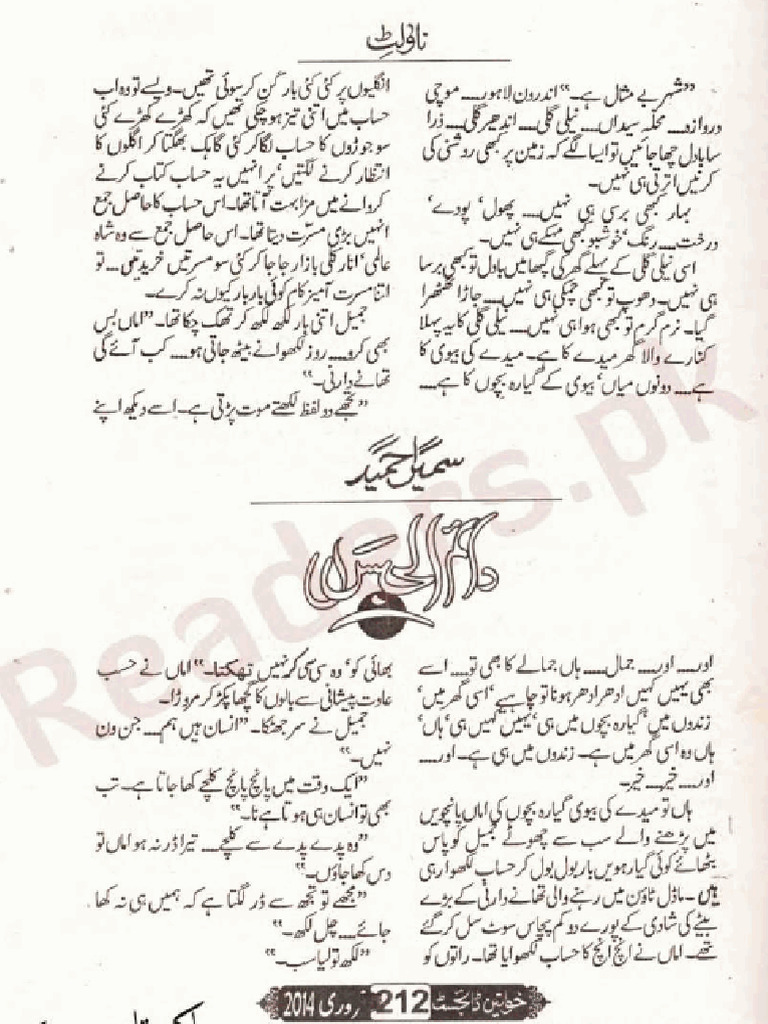 ناولٹ
”شہر بے مثال ہے۔“ اندرون لاہور.... موچی
دروازہ.... محلہ سیداں.... نیلی گلی.... اندھیر گلی.... ذرا
سا بادل چھا جائیں تو ایسا لگے کہ زمین پر کبھی روشنی کی
کرنیں اتری ہی نہیں۔
بہار کبھی برسی ہی نہیں.... پھول‘ پودے‘
درخت.... رنگ‘ خوشبو کبھی مہکے ہی نہیں۔
اسی نیلی گلی کے پہلے گھر کی گچھا میں بادل تو کبھی برسا
ہی نہیں۔ دھوپ تو کبھی چمکی ہی نہیں.... جاڑا ٹھٹھرا
گیا۔ نرم گرم تو کبھی ہوا ہی نہیں.... نیلی گلی کا یہ پہلا
کنارے والا گھر میدے کا ہے۔ میدے کی بیوی کا
ہے.... دونوں میاں‘ بیوی کے گیارہ بچوں کا ہے....
انگلیوں پر کئی کئی بار گن کر سوئی تھیں۔ ویسے تو وہ اب
حساب میں اتنی تیز ہو چکی تھیں کہ کھڑے کھڑے کئی
سو جوڑوں کا حساب لگا کر کئی گاہک بھگتا کر اگلوں کا
انتظار کرنے لگتیں‘ پر انہیں یہ حساب کتاب کرنے
کروانے میں مزا بہت آتا تھا۔ اس حساب کا حاصل جمع
انہیں بڑی مسرت دیتا تھا۔ اس حاصل جمع سے وہ شاہ
عالمی‘ انار کلی بازار جا جا کر کئی سو مسرتیں خریدتیں.... تو
اتنا مسرت آمیز کام کوئی بار بار کیوں نہ کرے۔
جمیل اتنی بار لکھ لکھ کر تھک چکا تھا۔ ”اماں بس
بھی کرو.... روز لکھوانے بیٹھ جاتی ہو.... کب آئے گی
تھانے دارنی۔“
”تجھے دو لفظ لکھتے موت پڑتی ہے۔ اسے دیکھ اپنے
سمیرا حمید
دائم الحبس
اور.... اور.... جمال.... ہاں جمالے کا بھی تو.... اسے
بھی یہیں کہیں ادھر ادھر ہونا تو چاہیے‘ اسی گھر میں‘
زندوں میں‘ گیارہ بچوں میں ہی‘ یہیں کہیں ہی‘ ہاں‘
ہاں وہ اسی گھر میں ہے۔ زندوں میں ہی ہے۔ اور....
اور.... خیر.... خیر۔
ہاں تو میدے کی بیوی گیارہ بچوں کی اماں پانچویں
میں پڑھنے والے سب سے چھوٹے جمیل کو پاس
بٹھائے کوئی گیارہویں بار بول بول کر حساب لکھوا رہی
ہیں۔ ماڈل ٹاؤن میں رہنے والی تھانے دارنی کے بڑے
بیٹے کی شادی کے پورے دو کم پچاس سوٹ سل کر گئے
تھے۔ اماں نے انچ انچ کا حساب لکھوایا تھا۔ راتوں کو
بھائی کو‘ وہ سی سی کر نہیں تھکتا۔“ اماں نے حسب
عادت پیشانی سے بالوں کا گچھا پکڑ کر مروڑا۔
جمیل نے سر جھٹکا۔ ”انسان ہیں ہم.... جن ون
نہیں۔“
”ایک وقت میں پانچ پانچ کلچے کھا جاتا ہے۔ تب
بھی تو انسان ہی ہوتا ہے نا۔“
”وہ پدے پدے سے کلچے.... تیرا ڈر نہ ہو اماں تو
دس کھا جاؤں۔“
”مجھے تو تجھ سے ڈر لگتا ہے کہ ہمیں ہی نہ کھا
جائے.... چل لکھ۔“
”لکھ تو لیا سب۔“
خواتین ڈائجسٹ 212 فروری 2014
Readers.pk